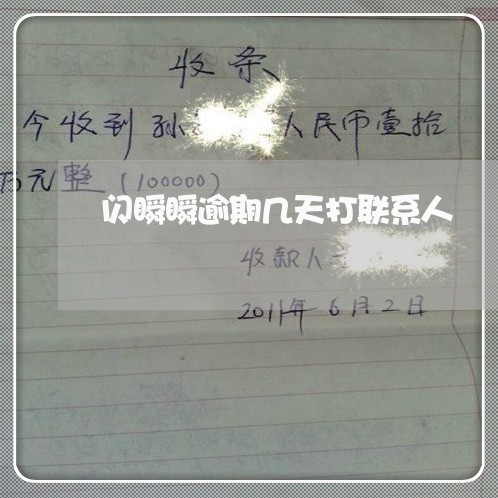 收条
今收到孙 人民币壹拾
万元整(100000)
闪瞬瞬逾期几天打联系人
收款人
2011年6月2日